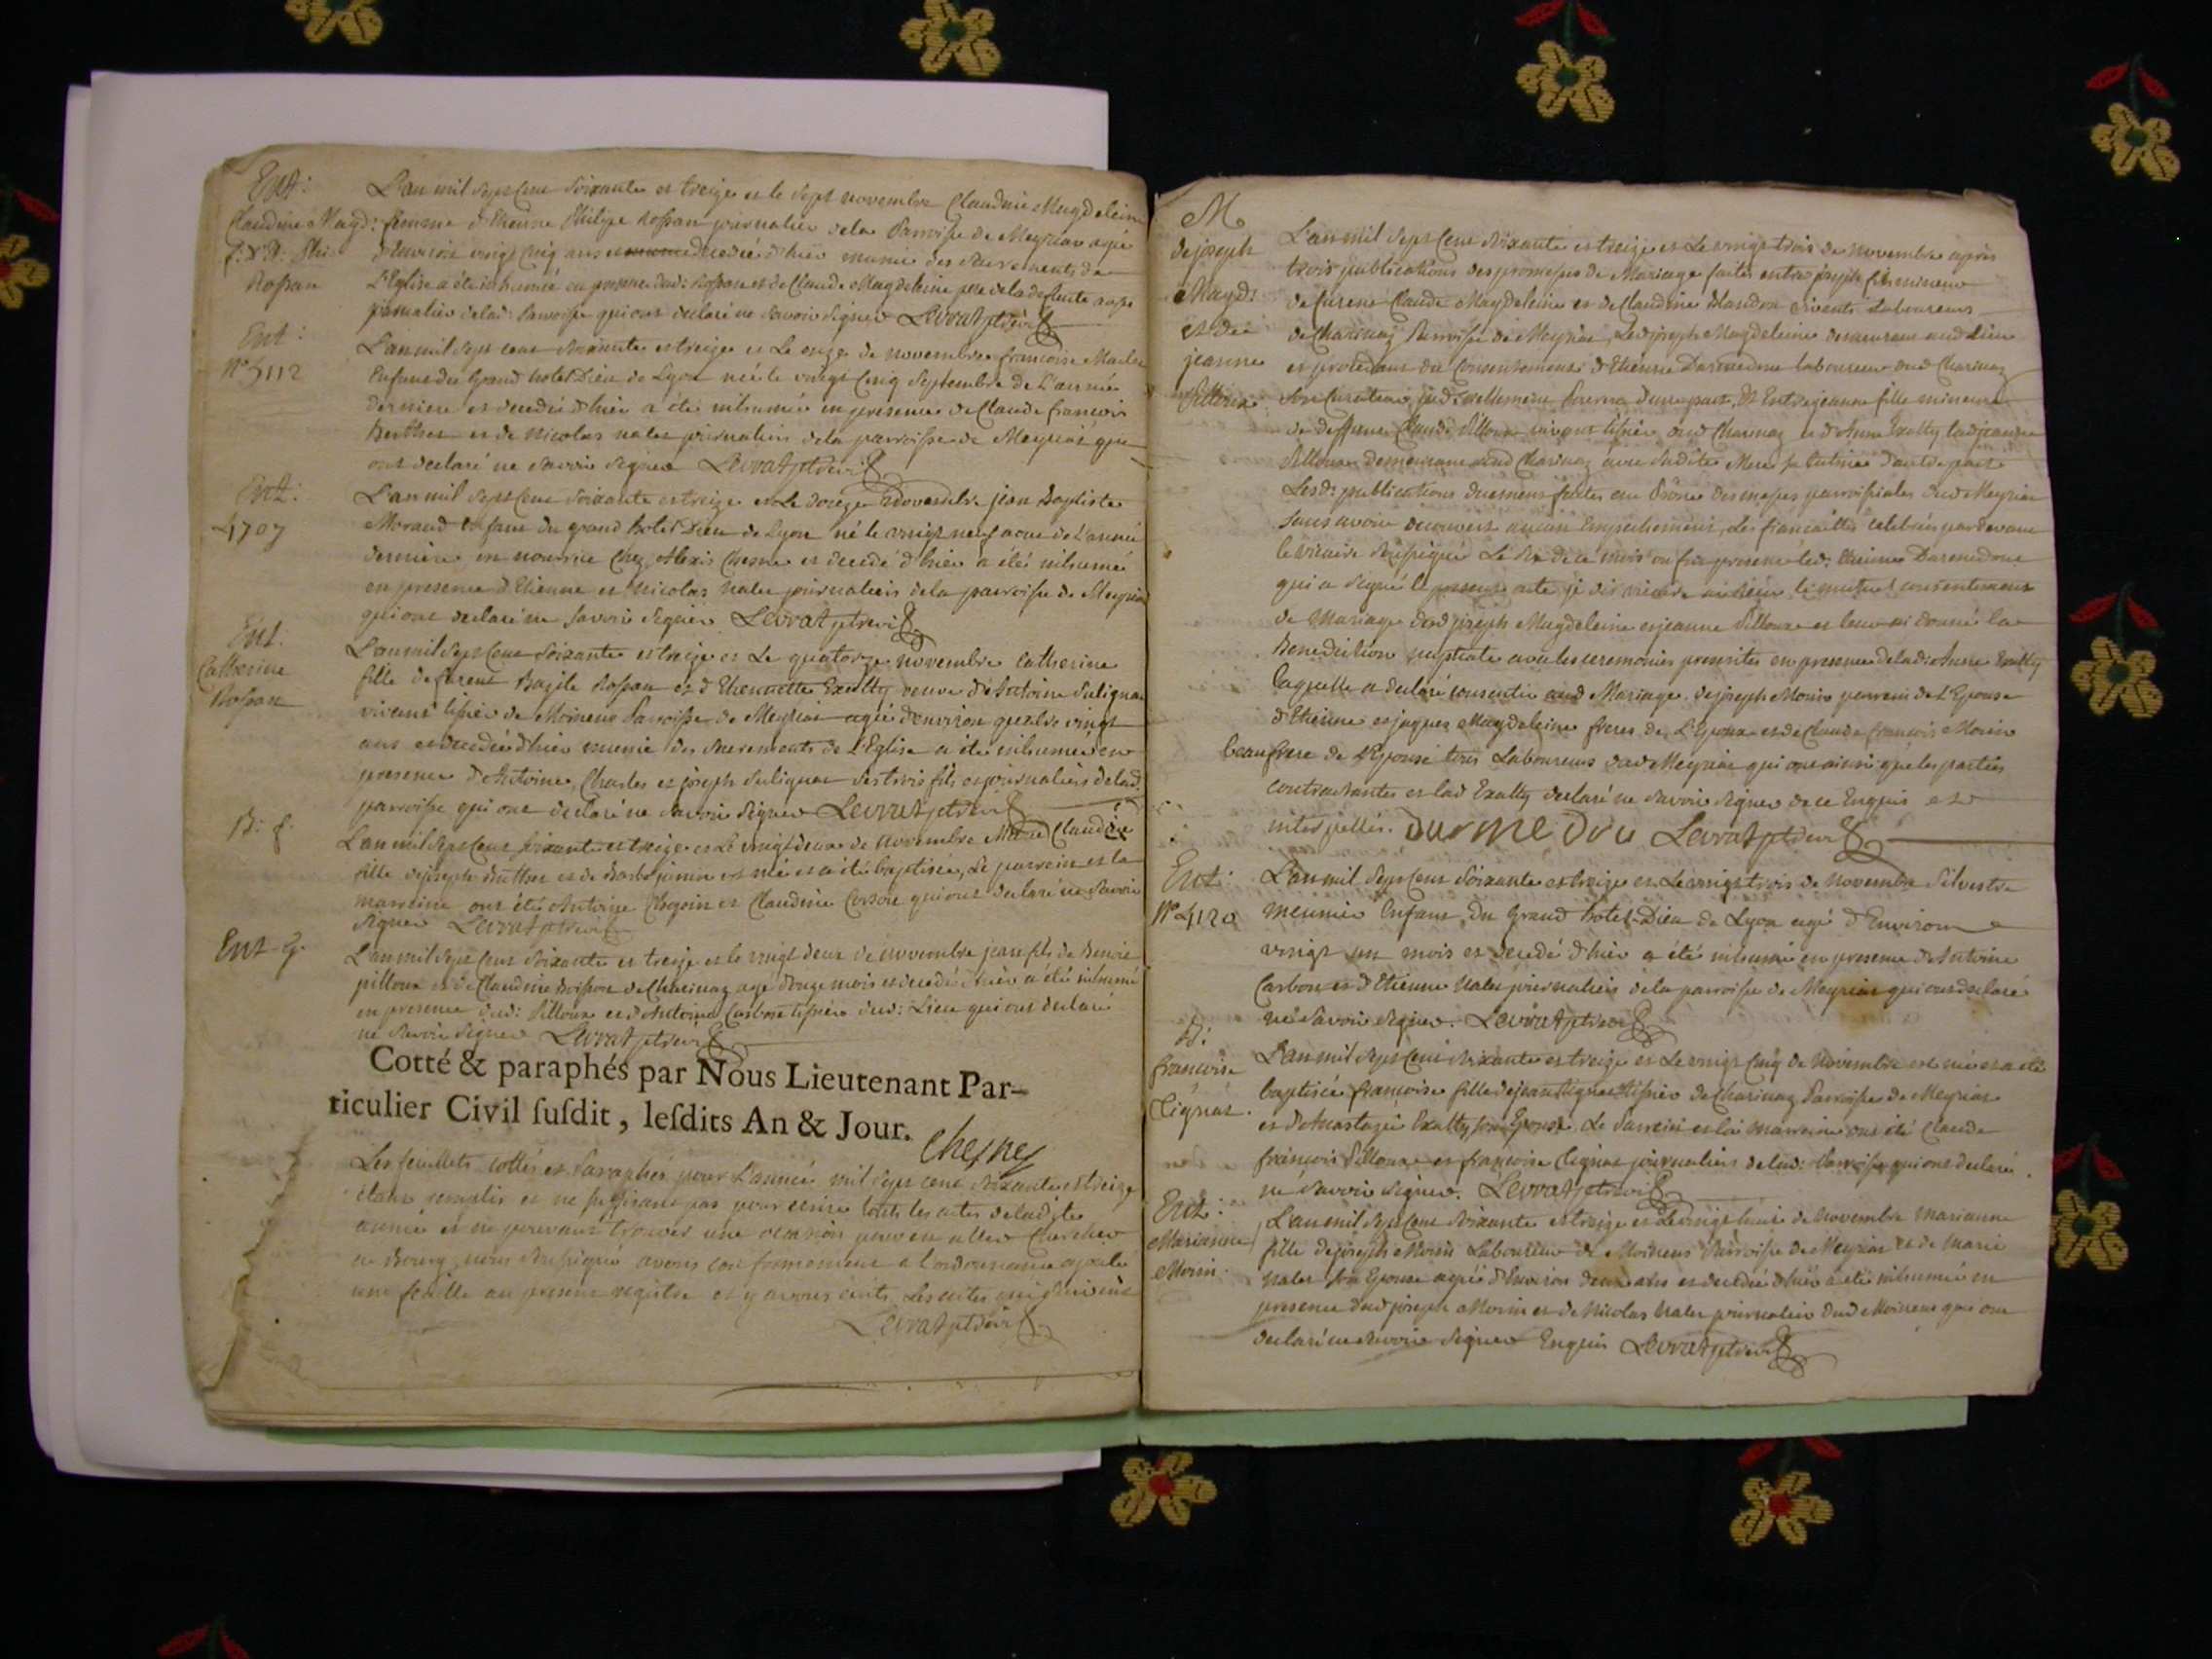 Ent:
Claudine Magd:
f. d'Et. Phi:
Rossan
L'an mil sept cent soixante et treize et le sept novembre Claudine Magdeleine
femme d'Etienne Philipe Rossan journalier de la Parroisse de Meyriat agée
d'environ vingt cinq ans et decedée d'hier munie des sacrements de
L'Eglise a été inhumée en presence dud: Rossan et de Claude Magdeleine pere de la deffunte aussi
journalier de lad: Parroisse qui ont declaré ne savoir signer Levrat ptre vic
Ent:
N° 5112
L'an mil sept cent soixante et treize et Le onze de novembre francoise
Enfant du grand hotel Dieu de Lyon née le vingt cinq septembre de L'année
derniere et decedée d'hier a été inhumée en presence de Claude francois
Berthet et de Nicolas nalet journaliers de la parroisse de Meyriat qui
ont declaré ne savoir signer Levrat ptre vic
Ent:
4707
L'an mil sept cent soixante et treize et Le douze Novembre jean Baptiste
Morand Enfant du grand hotel Dieu de Lyon né le vingt neuf aout de L'année
derniere en nourrice chez Alexis Chesne et decedé d'hier a été inhumé
en presence d'Etienne et Nicolas nalet journaliers de la parroisse de Meyriat
qui ont declaré ne savoir signer Levrat ptre vic
Ent.
Catherine
Rossan
L'an mil sept cent soixante et treize et Le quatorze novembre Catherine
fille de furent Bazile Rossan et d'Etiennette Exatty veuve d'Antoine Sulignat
vivant tissier de Moineus Parroisse de Meyriat agée d'environ quatre vingt
ans et decedée d'hier munie des sacrements de L'Eglise a été inhumée en
presence d'Antoine, Charles et joseph Sulignat ses trois fils et journaliers de lad:
parroisse qui ont declaré ne savoir signer Levrat ptre vic
B. f.
L'an mil sept cent soixante et treize et Le vingt deux de novembre Claudine
fille de joseph et de Barbe est née et a été baptisée, Le parrein et la
marreine ont été Antoine et Claudine qui ont declaré ne savoir
signer Levrat ptre vic
Ent g.
L'an mil sept cent soixante et treize et le vingt deux de novembre jean fils de Benoit
pilloux et de Claudine Boisson de Charinaz agé d'onze mois et decedé d'hier a été inhumé
en presence dud: Pilloux et d'Antoine Carbon tissier dud: Lieu qui ont declaré
ne savoir signer Levrat ptre vic
Cotté & paraphés par Nous Lieutenant Par-
ticulier Civil suſdit, leſdits An & Jour.
Chesney
Les feuillets cottés et Paraphés pour L'année mil sept cent soixante et treize
étant remplis et ne suffisant pas pour ecrire touts les actes de ladite
année et ne pouvant trouver une occasion pour en aller chercher
a Bourg, nous soussigné avons conformement a l'ordonnance ajouté
une feuille au present registre et y avons écrits Les actes qui suivent
Levrat ptre vic
M
de joseph
Magd:
et de
jeanne
Pilloux
L'an mil sept cent soixante et treize et Le vingt trois de novembre après
trois publications des promesses de Mariage faites entre joseph fils mineur
de furent Claude Magdeleine et de Claudine vivants Laboureurs
de Charinaz Parroisse de Meyriat, Led: joseph Magdeleine demeurant aud Lieu
et procedant du consentement d'Etienne Darmedone laboureur dud Charinaz
son Curateur d'une part, Et Entre jeanne fille mineure
de deffunt Claude Pilloux vivant tissier dud Charinaz et d'Anne Exatty lad jeanne
Pilloux demeurant aud Charinaz avec sadite Mere d'autre part
Lesd: publications duement faites au Prône des messes parroissiales dud Meyriat
sans avoir decouvert aucun Empechement, Les fiancailles celebrées par devant
le vicaire soussigné Le six de ce mois en presence led: Etienne Darmedone
qui a signé le present acte je dit vicaire ai reçu le mutuel consentement
de Mariage dud joseph Magdeleine et jeanne Pilloux et leur ai donné la
Benediction nuptiale avec les ceremonies prescrites en presence de lad: Anne Exatty
laquelle a declaré consentir aud Mariage. de joseph Morin parrein de L'Epouse
d'Etienne et jaques Magdeleine freres de L'Epoux et de Claude francois Morin
beaufrere de L'Epouse tous Laboureurs dud Meyriat qui ont ainsi que les parties
contractantes et lad Exatty declaré ne savoir signer de ce Enquis et
interpellés. Durmedon Levrat ptre vic
Ent:
N° 4120
L'an mil sept cent soixante et treize et Le vingt trois de novembre Silvestre
meunier Enfant du grand hotel-Dieu de Lyon agé d'Environ
vingt un mois et decedé d'hier a été inhumé en presence d'Antoine
Carbon et d'Etienne Nalet journaliers de la parroisse de Meyriat qui ont declaré
ne savoir signer. Levrat ptre vic
B.
francoise
Tignat.
L'an mil sept cent soixante et treize et Le vingt cinq de Novembre est née et a été
baptisée francoise fille de jean Tignat tissier de Charinaz Parroisse de Meyriat
et d'Anastazie Exatty son Epouse. Le Parrein et la marreine ont été Claude
francois Pilloux et francoise Tignat journaliers de lad: Parroisse qui ont declaré
ne savoir signer. Levrat ptre vic
Ent:
Marianne
Morin.
L'an mil sept cent soixante et treize et Le vingt huit de novembre Marianne
fille de joseph Morin Laboureur de Moineus Parroisse de Meyriat et de Marie
Nalet son Epouse agée d'Environ deux ans et decedée d'hier a été inhumée en
presence dud joseph Morin et de Nicolas Nalet journalier dud Moineus qui ont
declaré ne savoir signer Enquis Levrat ptre vic